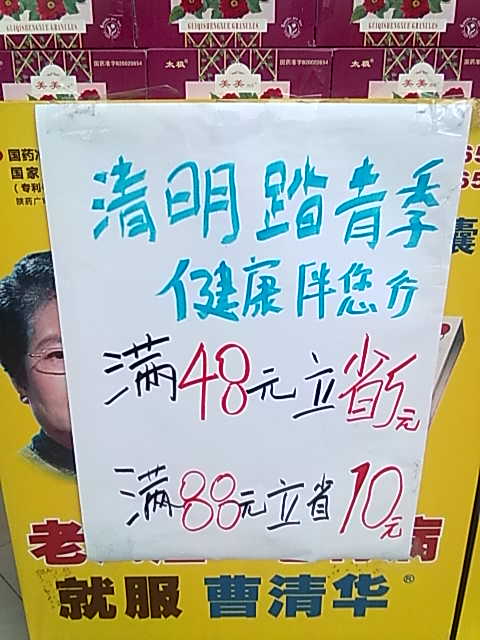 GUIQISHENGXUE GRANULES
GUIQISHENGXUE GRANULES
国药准字B20020854
太极
国药准字B20020854
太极
美美
美美
国药准
国家
(专利
陕药广
囊
清明踏青季
健康伴您行
满48元立省5元
满88元立省10元
老
病
就服 曹清华®